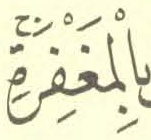 بِالْمَغْفِرَةِ ۚ